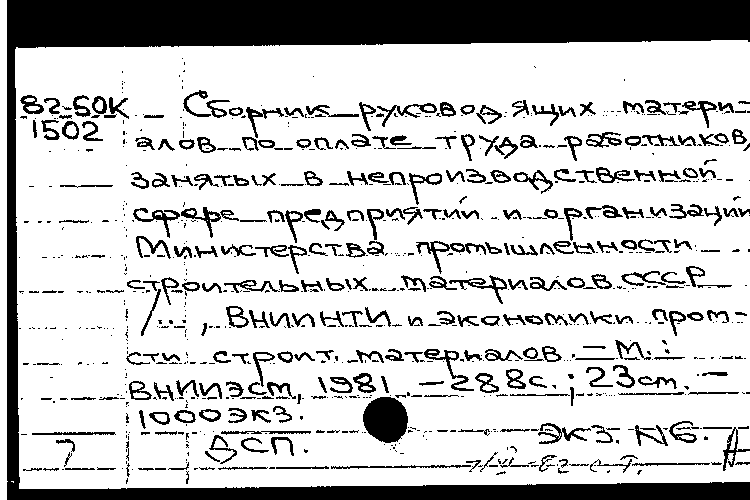 82-50К
1502
Сборник руководящих матери-
алов по оплате труда работников,
занятых в непроизводственной
сфере предприятий и организаций
Министерства промышленности
строительных материалов СССР
/..., ВНИИНТИ и экономики пром-
сти строит. материалов. – М.:
ВНИИЭСМ, 1981. – 288с.; 23см. –
1000экз.
7 ДСП. экз. N6. А
7/VI -82 с.т.